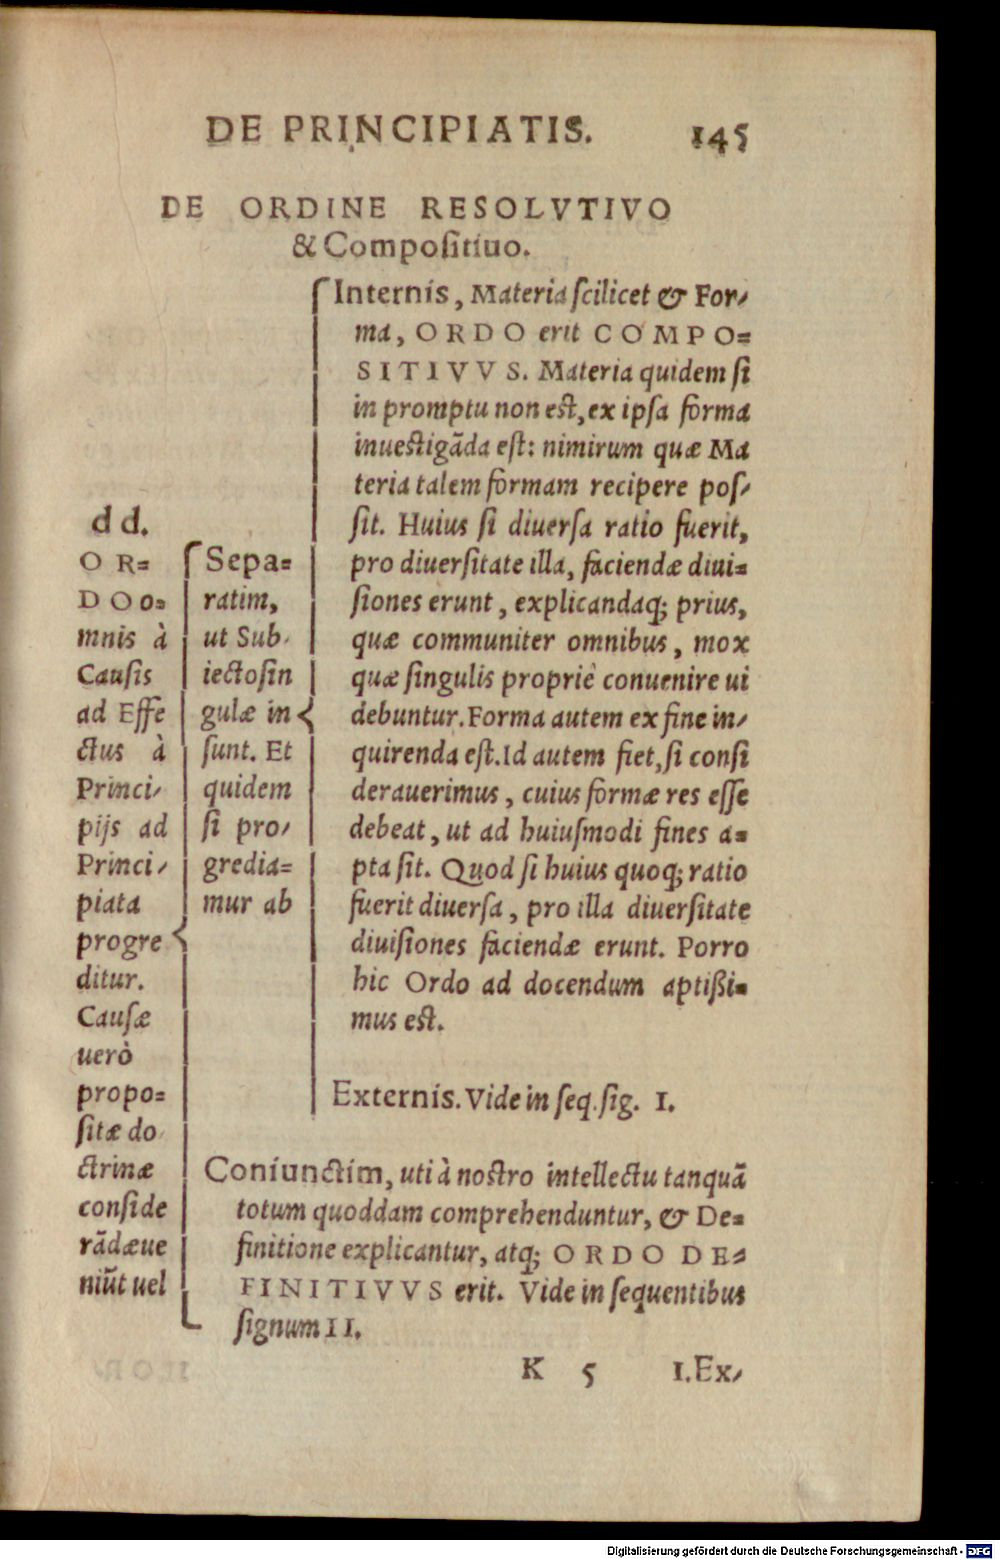 DE PRINCIPIATIS. 145
DE ORDINE RESOLVTIVO
& Compositiuo.
d d.
O R=
D O o=
mnis à
Causis
ad Effe
ctus à
Princi-
pijs ad
Princi-
piata
progre
ditur.
Causæ
uerò
propo=
sitæ do
ctrinæ
conside
rãdæue
niũt uel
Sepa=
ratim,
ut Sub-
iectosin
gulæ in
sunt. Et
quidem
si pro-
gredia=
mur ab
Internis, Materia scilicet & For-
ma, ORDO erit COMPO=
SITIVVS. Materia quidem si
in promptu non est, ex ipsa forma
inuestigãda est: nimirum quæ Ma
teria talem formam recipere pos-
sit. Huius si diuersa ratio fuerit,
pro diuersitate illa, faciendæ diui=
siones erunt, explicandaq; prius,
quæ communiter omnibus, mox
quæ singulis propriè conuenire ui
debuntur. Forma autem ex fine in-
quirenda est. Id autem fiet, si consi
derauerimus, cuius formæ res esse
debeat, ut ad huiusmodi fines a=
pta sit. Quod si huius quoq; ratio
fuerit diuersa, pro illa diuersitate
diuisiones faciendæ erunt. Porro
hic Ordo ad docendum aptißi=
mus est.
Externis. Vide in seq. sig. I.
Coniunctim, uti à nostro intellectu tanquã
totum quoddam comprehenduntur, & De=
finitione explicantur, atq; ORDO DE=
FINITIVVS erit. Vide in sequentibus
signum II.
K 5 I. Ex-
Digitalisierung gefördert durch die Deutsche Forschungsgemeinschaft - DFG